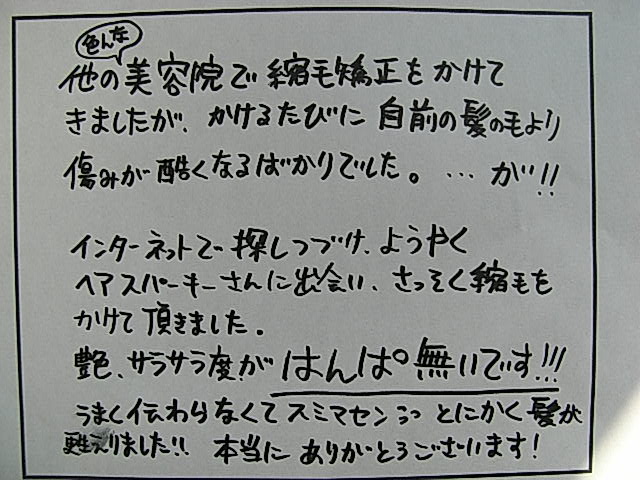 色んな
他の美容院で縮毛矯正をかけて
きましたが、かけるたびに自前の髪の毛より
傷みが酷くなるばかりでした。…が!!
インターネットで探しつづけ、ようやく
ヘアスパーキーさんに出会い、さっそく縮毛を
かけて頂きました。
艶、サラサラ度がはんぱ無いです!!!
うまく伝わらなくてスミマセン とにかく髪が
甦えりました!! 本当にありがとうございます!